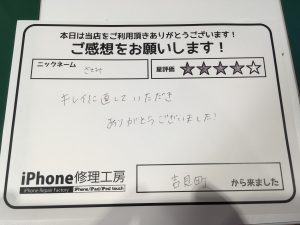 本日は当店をご利用頂きありがとうございます!
ご感想をお願いします!
ニックネーム
さとみ
星評価
★★★★☆
キレイに直していただき
ありがとうございました!
iPhone修理工房
iPhone Repair Factory
iPhone/iPad/iPod touch
吉見町
から来ました